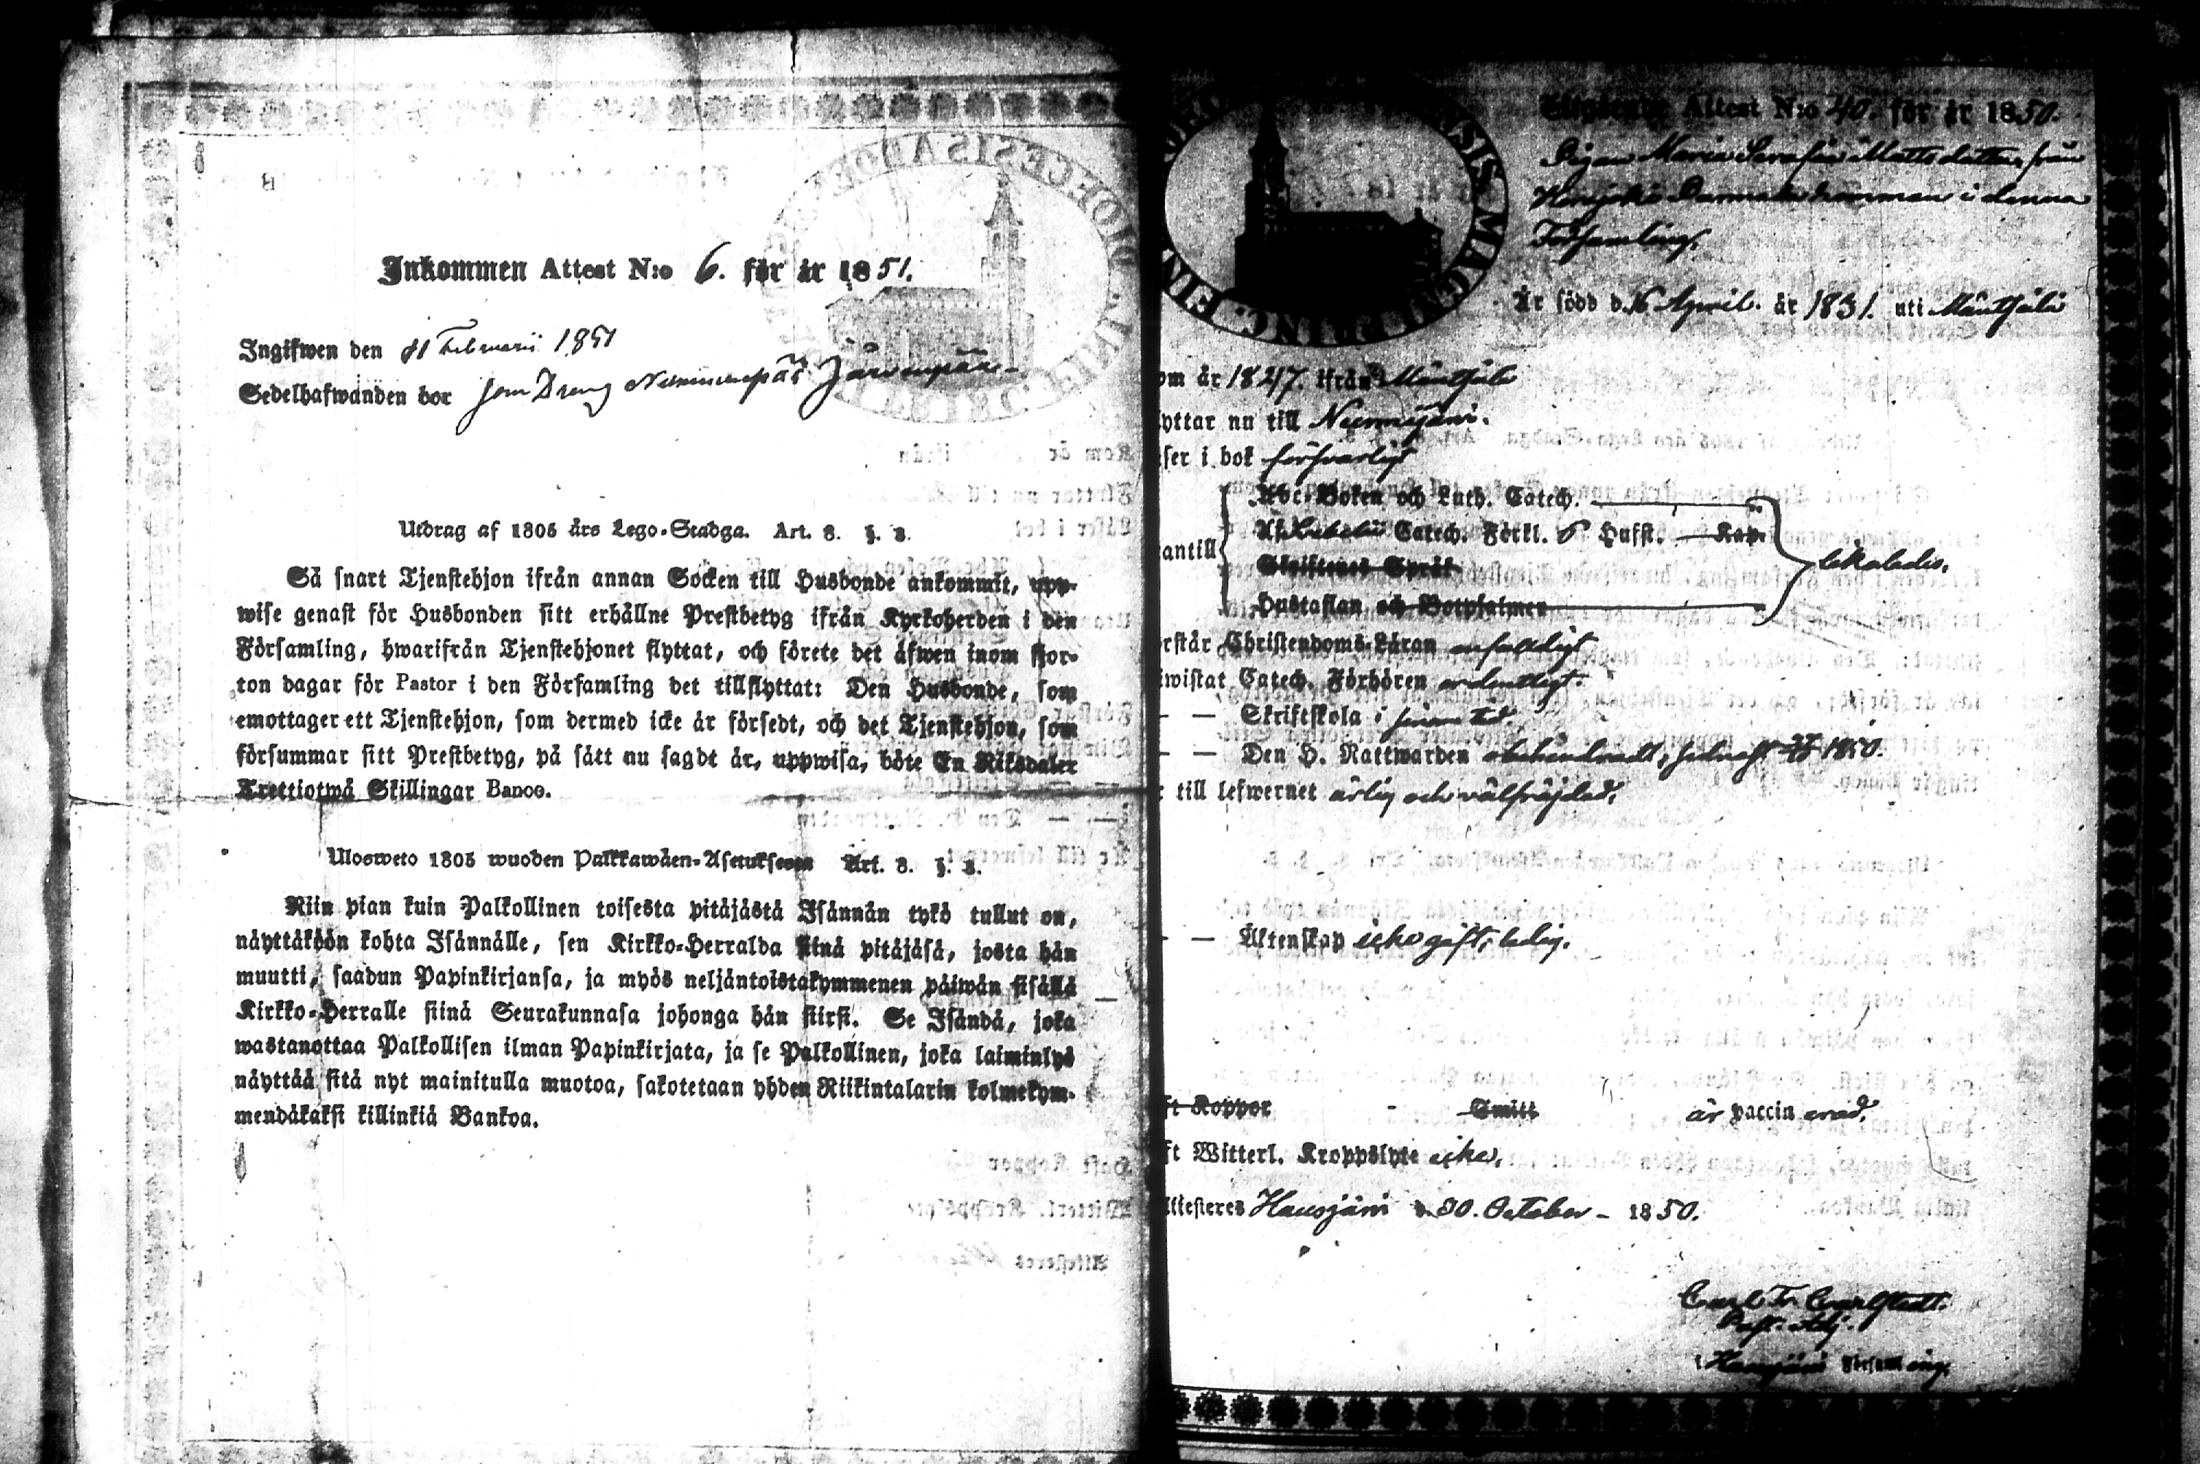 Inkommen Attest N:o 6. för år 1851.
Ingifwen den 11 Februarii 1851
Sedelhafwanden bor som Dreng Nummenpää Järvenpää
Utdrag af 1805 års Lego-Stadga. Art. 3. §. 3.
Så snart Tjenstehjon ifrån annan Socken till Husbonde ankommit, upp-
wise genast för Husbonden sitt erhållne Prestbetyg ifrån Kyrkoherden i den
Församling, hwarifrån Tjenstehjonet flyttat, och förete det äfwen inom fjor-
ton dagar för Pastor i den Församling det tillflyttat: Den Husbonde, som
emottager ett Tjenstehjon, som dermed icke är försedt, och det Tjenstehjon, som
försummar sitt Prestbetyg, på sätt nu sagdt är, uppwisa, böte En Riksdaler
Trettiotwå Skillingar Banco.
Ulosweto 1805 wuoden Palkkawäen-Asetuksesta Art. 3. §. 3.
Niin pian kuin Palkollinen toisesta pitäjästä Isännän tykö tullut on,
näyttäköön kohta Isännälle, sen Kirkko-Herralda siinä pitäjäsä, josta hän
muutti, saadun Papinkirjansa, ja myös neljäntoistakymmenen päiwän sisällä
Kirkko-Herralle siinä Seurakunnasa johonga hän siirsi. Se Isändä, joka
wastanottaa Palkollisen ilman Papinkirjata, ja se Palkollinen, joka laiminlyö
näyttää sitä nyt mainitulla muotoa, sakotetaan yhden Riikintalarin kolmekym-
mendäkaksi killinkiä Bankoa.
Attest N:o 40. för år 1850.
Pigan Maria Serafia Mattsdotter från
Herajoki i denna
Församling.
Är född d. 16 April. år 1831. uti Mäntsälä
om år 1847. ifrån Mäntsälä
yttar nu till Nurmijärvi.
ser i bok försvarligt
Abc-Boken och Luth. Catech.
antill Catech. Förkl. 6 Hufst. Kap.
Skriftenes Språk
Hustaflan och Botpsalmer
likaledes.
rstår Christendoms-Läran enfaldigt
iwistat Catech. Förhören ordentligt.
— — Skriftskola i sinom tid
— — Den H. Nattwarden obehindradt, sednast 1850.
r till lefwernet ärlig och välfräjdad.
— — Äktenskap icke gift, ledig.
ft Koppor - Smitt är vaccinerad.
ft Witterl. Kroppslyte icke.
ttesteres Hausjärvi d. 30. October - 1850.
Carl Fr. Carlstedt.
Past. Adj.
i Hausjärvi Församling.